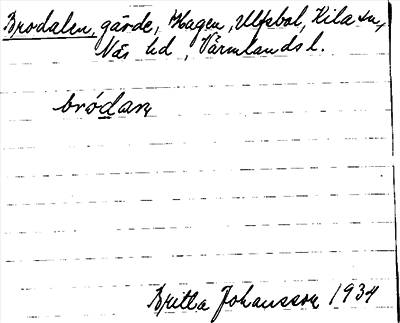 Brodalen, gärde, Hagen, Ulfsbol, Kila sn,
Näs hd, Värmlands l.
bródaɲ
Britta Johansson 1934